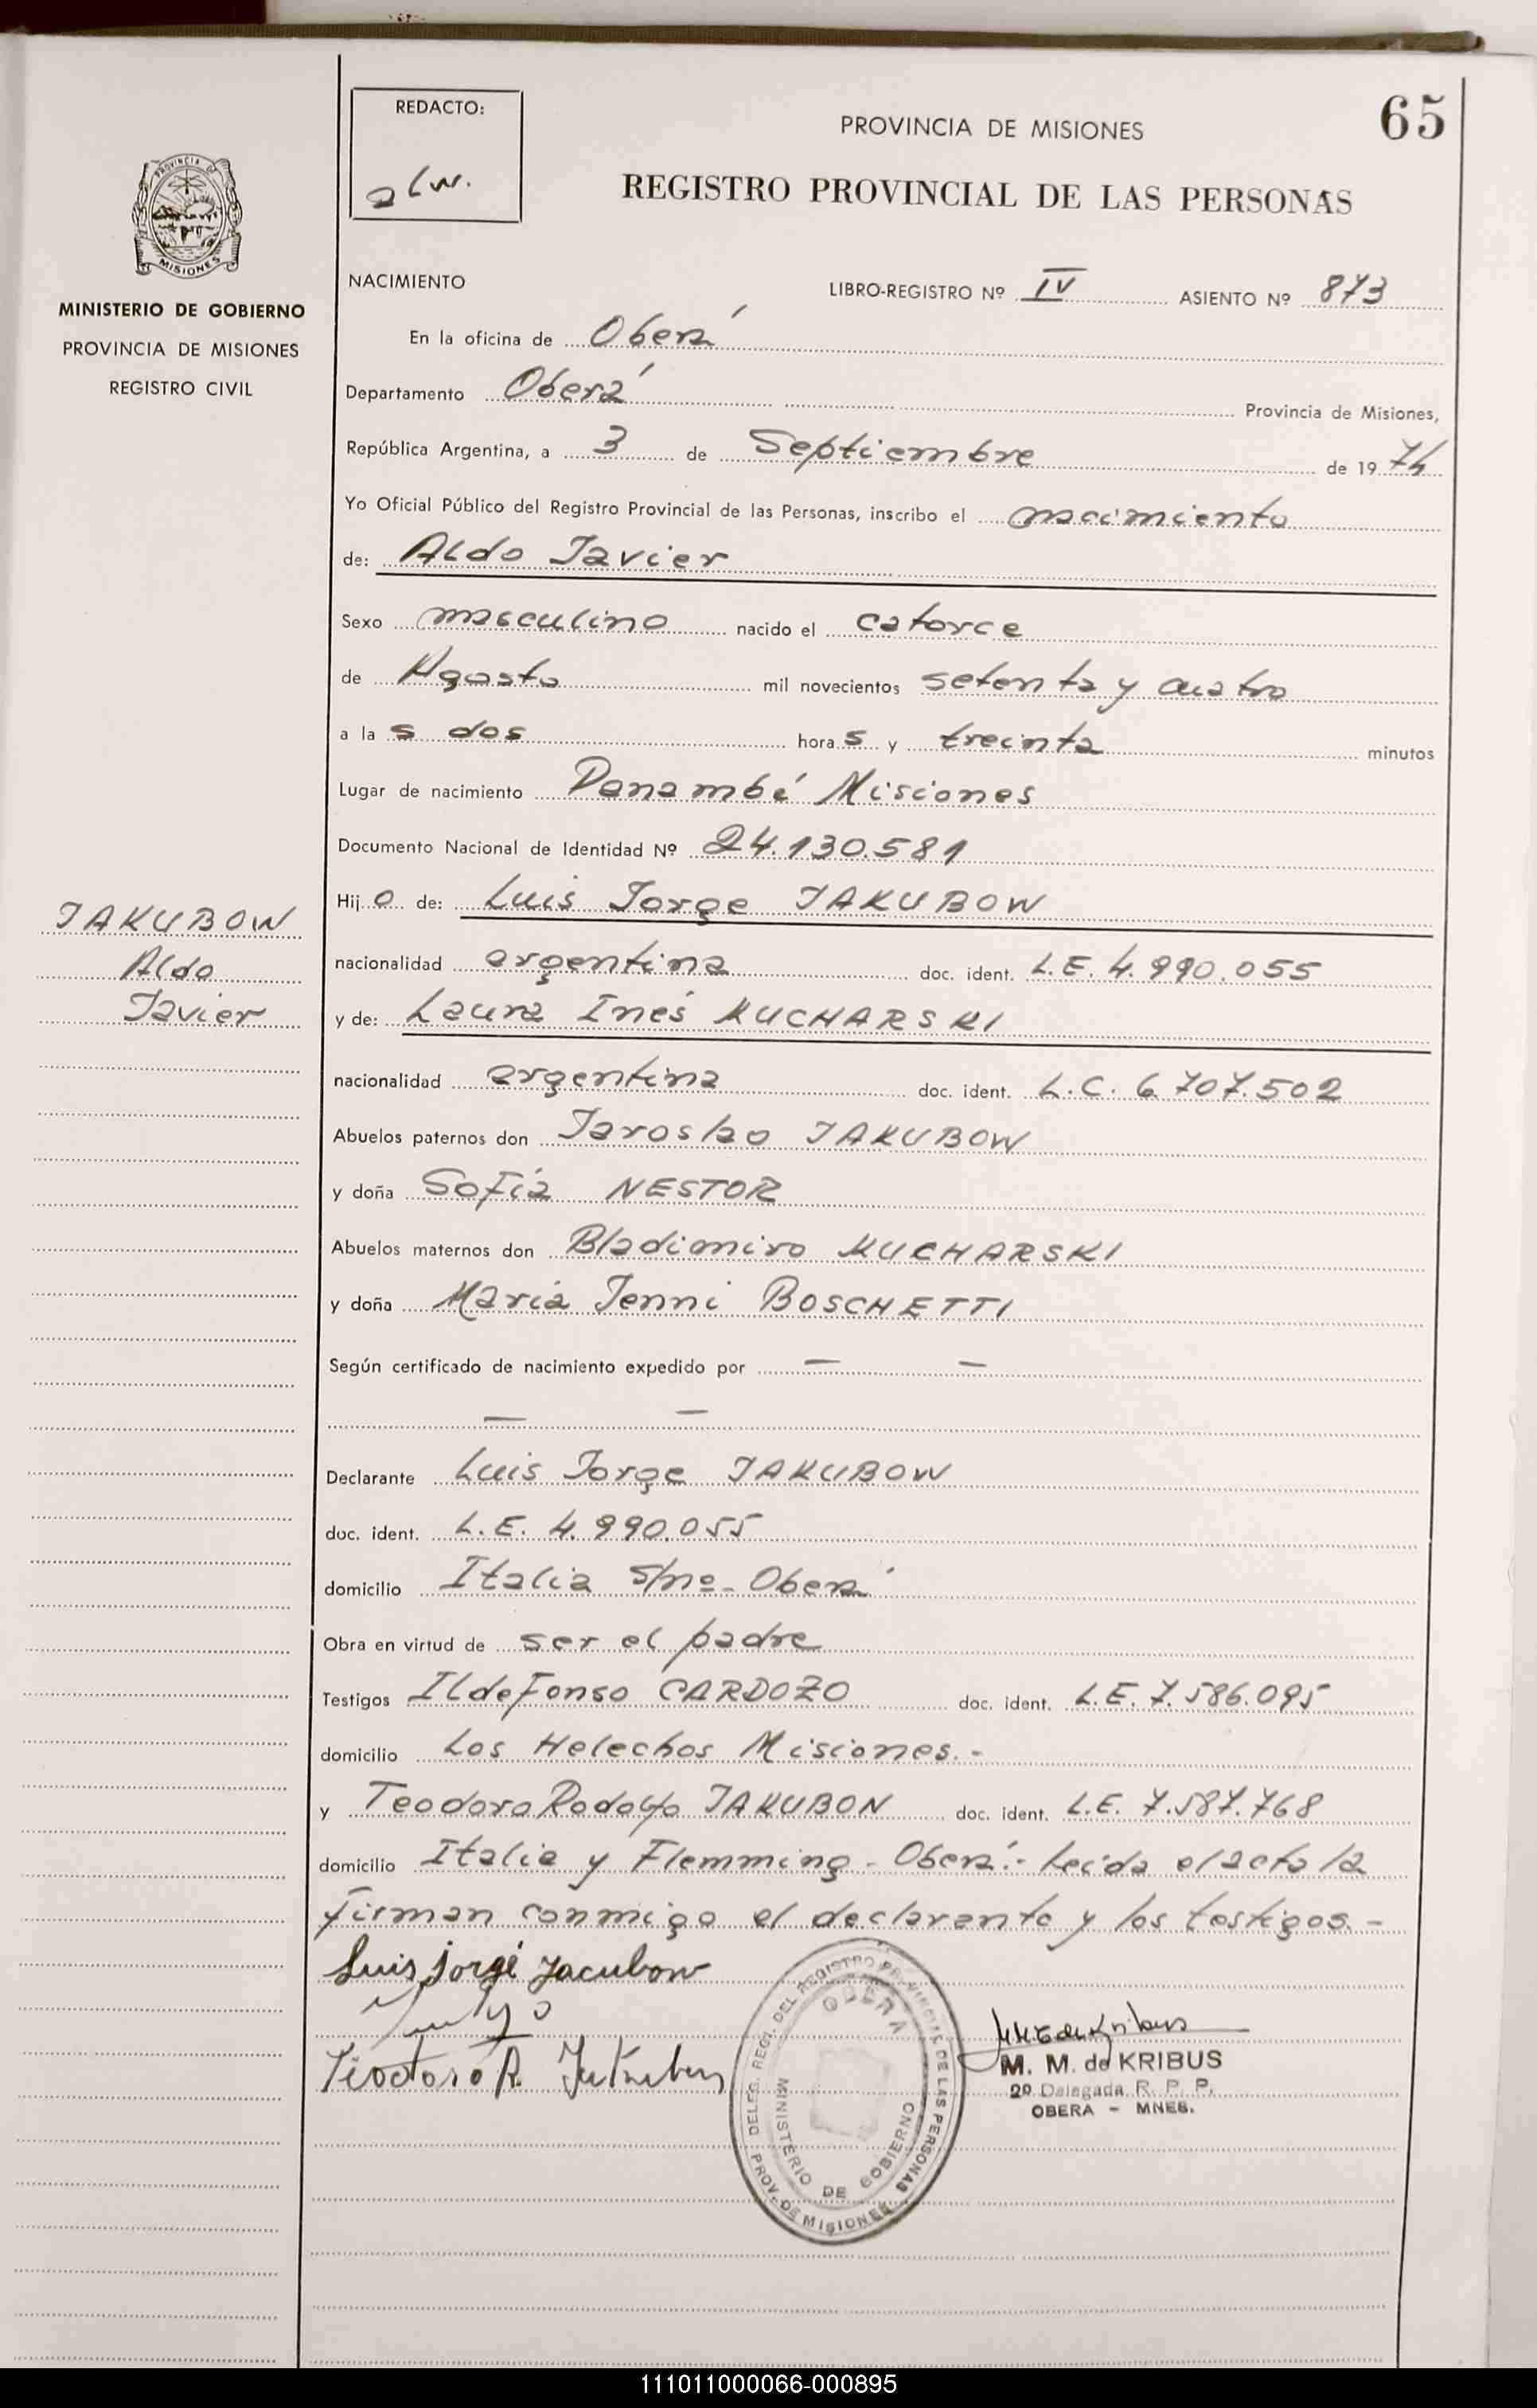 65
REDACTO:
PROVINCIA DE MISIONES
REGISTRO PROVINCIAL DE LAS PERSONAS
PROVINCIA DE
MISIONES
MINISTERIO DE GOBIERNO
PROVINCIA DE MISIONES
REGISTRO CIVIL
NACIMIENTO
LIBRO-REGISTRO Nº IV ASIENTO Nº 873
En la oficina de Oberá
Departamento Oberá Provincia de Misiones,
República Argentina, a 3 de Septiembre de 1974
Yo Oficial Público del Registro Provincial de las Personas, inscribo el nacimiento
de: Aldo Javier
Sexo masculino nacido el catorce
de Agosto mil novecientos setenta y cuatro
a las dos horas y treinta minutos
Lugar de nacimiento Panambí Misiones
Documento Nacional de Identidad Nº 24.130.581
Hijo de: Luis Jorge JAKUBOW
JAKUBOW
Aldo
Javier
nacionalidad argentina doc. ident. L.E. 4.990.055
y de: Laura Inés KUCHARSKI
nacionalidad argentina doc. ident. L.C. 6.707.502
Abuelos paternos don Jaroslao JAKUBOW
y doña Sofía NESTOR
Abuelos maternos don Bladimiro KUCHARSKI
y doña María Jenni BOSCHETTI
Según certificado de nacimiento expedido por — —
— —
Declarante Luis Jorge JAKUBOW
doc. ident. L.E. 4.990.055
domicilio Italia s/nº - Oberá
Obra en virtud de ser el padre
Testigos Ildefonso CARDOZO doc. ident. L.E. 7.586.095
domicilio Los Helechos Misiones.-
y Teodoro Rodolfo JAKUBON doc. ident. L.E. 7.587.768
domicilio Italia y Flemming - Oberá.- Leída el acta la
firman conmigo el declarante y los testigos.-
Luis jorge Jacubow
Teodoro R.
DELEG. REGI. DEL REGISTRO PROVINCIAL DE LAS PERSONAS
OBERA
MINISTERIO DE GOBIERNO
PROV. DE MISIONES
M. M. de KRIBUS
2º Delegada R. P. P.
OBERA - MNES.
111011000066-000895